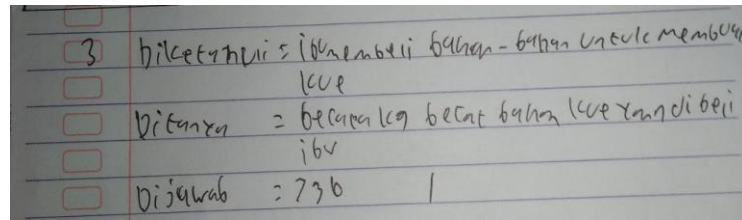 3 Diketahui = ibu membeli bahan-bahan untuk membuat
kue
Ditanya = berapa kg berat bahan kue yang dibeli
ibu
Dijawab = 736